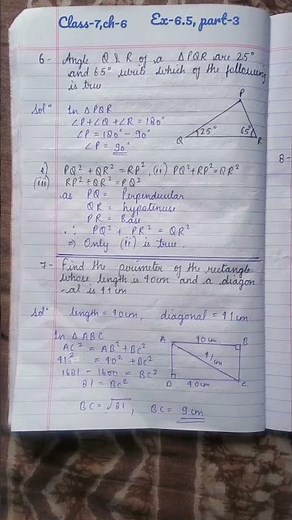 Class-7, ch-6 Ex-6.5, part-3
6- Angle Q & R of a △PQR are 25°
and 65° write which of the following
is true
Solⁿ In △PQR
∠P+∠Q+∠R=180°
∠P = 180°-90°
∠P = 90°
P
Q 25° 65° R
i) PQ²+QR²=RP², (ii) PQ²+RP²=QR²
(iii) RP²+QR²=PQ²
as PQ = Perpendicular
QR = hypotinus
PR = Base
∴ PQ² + PR² = QR²
⇒ Only (ii) is true.
7- Find the perimeter of the rectangle
whose length is 40cm and a diagon
-al is 41cm
Solⁿ length = 40cm, diagonal = 41cm
In △ABC
AC² = AB²+BC²
41² = 40²+BC²
1681-1600 = BC²
81 = BC²
BC=√81, BC = 9cm
A 40cm B
41cm
D 40cm C
8-